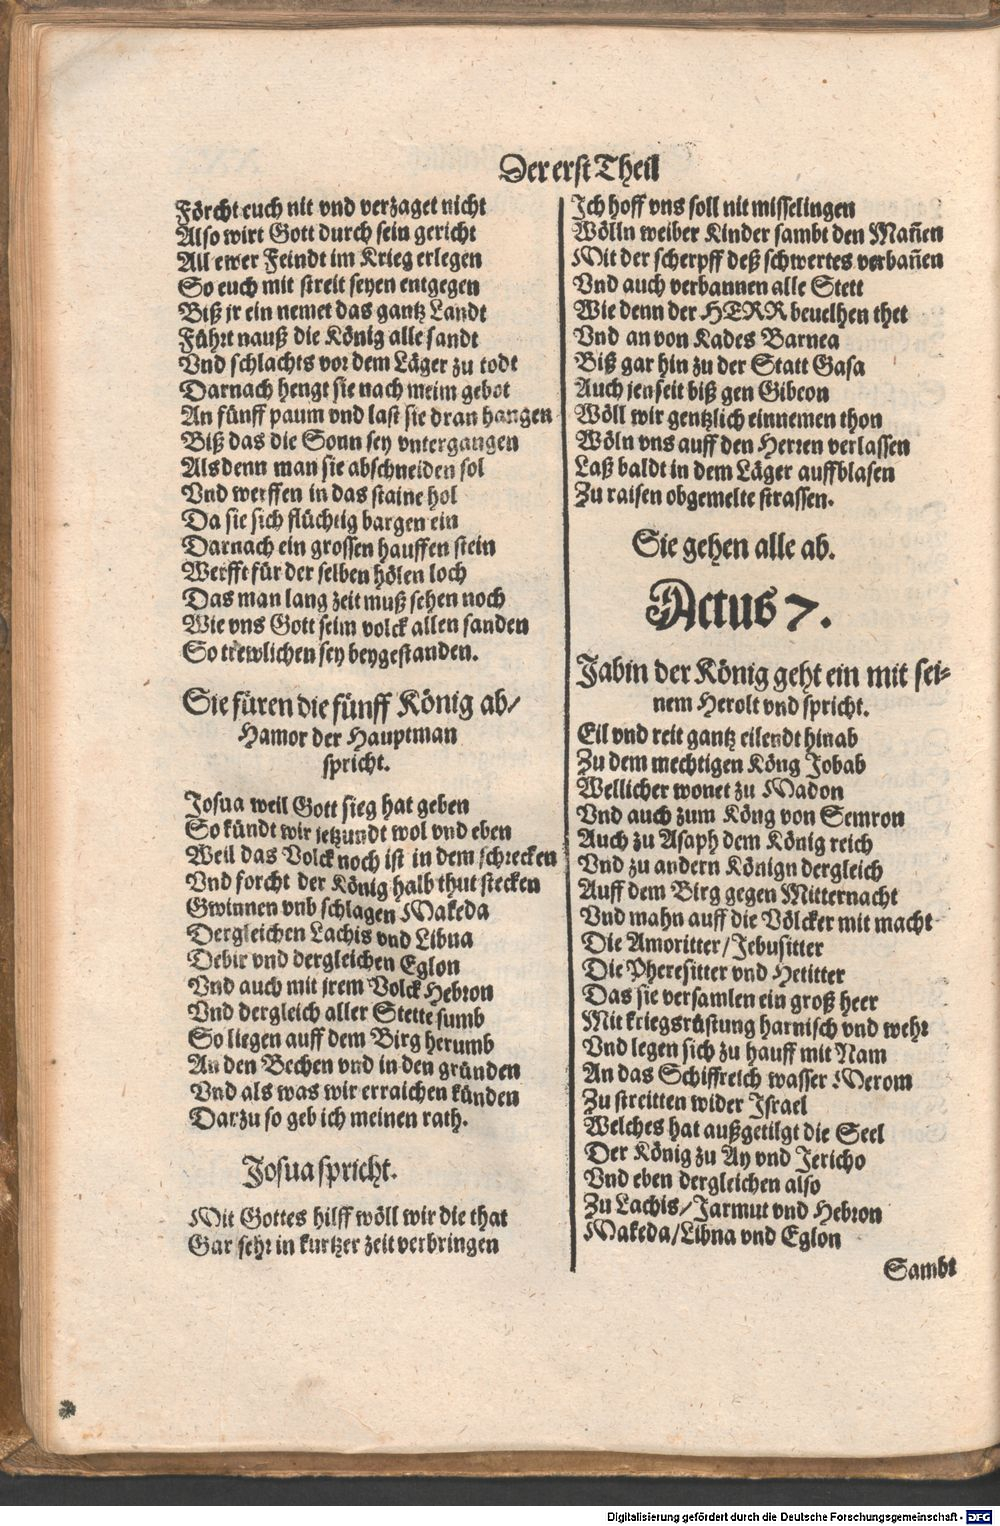 Der erst Theil
Förcht euch nit vnd verzaget nicht
Also wirt Gott durch sein gericht
All ewer Feindt im Krieg erlegen
So euch mit streit seyen entgegen
Biß jr ein nemet das gantz Landt
Führt nauß die König alle sandt
Vnd schlachts vor dem Läger zu todt
Darnach hengt sie nach meim gebot
An fünff paum vnd last sie dran hangen
Biß das die Sonn sey vntergangen
Als denn man sie abschneiden sol
Vnd werffen in das staine hol
Da sie sich flüchtig bargen ein
Darnach ein grossen hauffen stein
Werfft für der selben hölen loch
Das man lang zeit muß sehen noch
Wie vns Gott seim volck allen sanden
So trewlichen sey beygestanden.
Sie füren die fünff König ab/
Hamor der Hauptman
spricht.
Josua weil Gott sieg hat geben
So kündt wir jetzundt wol vnd eben
Weil das Volck noch ist in dem schrecken
Vnd forcht der König halb thut stecken
Gwinnen vnb schlagen Makeda
Dergleichen Lachis vnd Libna
Debir vnd dergleichen Eglon
Vnd auch mit jrem Volck Hebron
Vnd dergleich aller Stette sumb
So liegen auff dem Birg herumb
An den Bechen vnd in den gründen
Vnd als was wir erraichen künden
Darzu so geb ich meinen rath.
Josua spricht.
Mit Gottes hilff wöll wir die that
Gar sehr in kurtzer zeit verbringen
Ich hoff vns soll nit misselingen
Wölln weiber Kinder sambt den Mañen
Mit der scherpff deß schwertes verbañen
Vnd auch verbannen alle Stett
Wie denn der HERR beuelhen thet
Vnd an von Kades Barnea
Biß gar hin zu der Statt Gasa
Auch jenseit biß gen Gibeon
Wöll wir gentzlich einnemen thon
Wöln vns auff den Herren verlassen
Laß baldt in dem Läger auffblasen
Zu raisen obgemelte strassen.
Sie gehen alle ab.
Actus 7.
Jabin der König geht ein mit sei-
nem Herolt vnd spricht.
Eil vnd reit gantz eilendt hinab
Zu dem mechtigen Köng Jobab
Wellicher wonet zu Madon
Vnd auch zum Köng von Semron
Auch zu Asaph dem König reich
Vnd zu andern Könign dergleich
Auff dem Birg gegen Mitternacht
Vnd mahn auff die Völcker mit macht
Die Amoritter/Jebusitter
Die Pheresitter vnd Hetitter
Das sie versamlen ein groß heer
Mit kriegsrüstung harnisch vnd wehr
Vnd legen sich zu hauff mit Nam
An das Schiffreich wasser Merom
Zu streitten wider Israel
Welches hat außgetilgt die Seel
Der König zu Ay vnd Jericho
Vnd eben dergleichen also
Zu Lachis/Jarmut vnd Hebron
Makeda/Libna vnd Eglon
Sambt
Digitalisierung gefördert durch die Deutsche Forschungsgemeinschaft - DFG